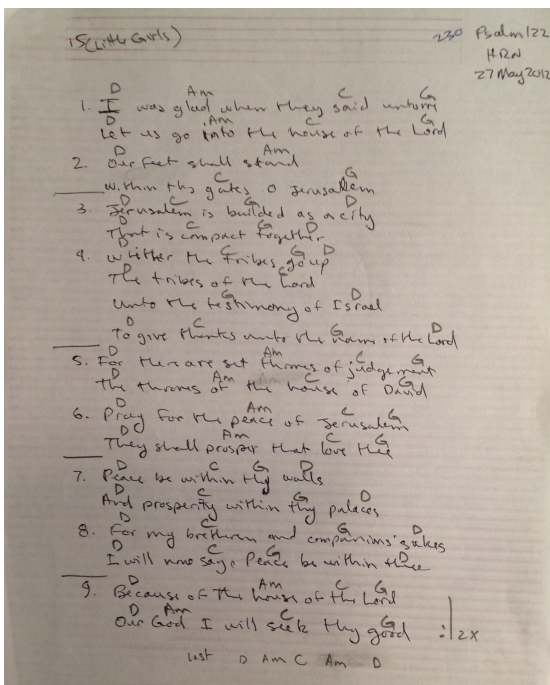 15 (Little Girls) 230 Psalm 122
HRN
27 May 2012
D Am C G
1. I was glad when they said unto me
D Am C G
Let us go into the house of the Lord
D Am
2. Our feet shall stand
C G
within thy gates O Jerusalem
D C G D
3. Jerusalem is builded as a city
D C G D
That is compact together
D C G D
4. Whither the tribes go up
D C
The tribes of the Lord
G D
unto the testimony of Israel
D C G D
To give thanks unto the name of the Lord
D Am C G
5. For there are set thrones of judgement
D Am C G
The thrones of the house of David
D Am C G
6. Pray for the peace of Jerusalem
D Am C G
They shall prosper that love thee
D C G D
7. Peace be within thy walls
D C G D
And prosperity within thy palaces
D C G D
8. For my bretheren and companions' sakes
D C G D
I will now say, Peace be within thee
D Am C G
9. Because of the house of the Lord
D Am C G
Our God I will seek thy good :| 2x
last D Am C Am D